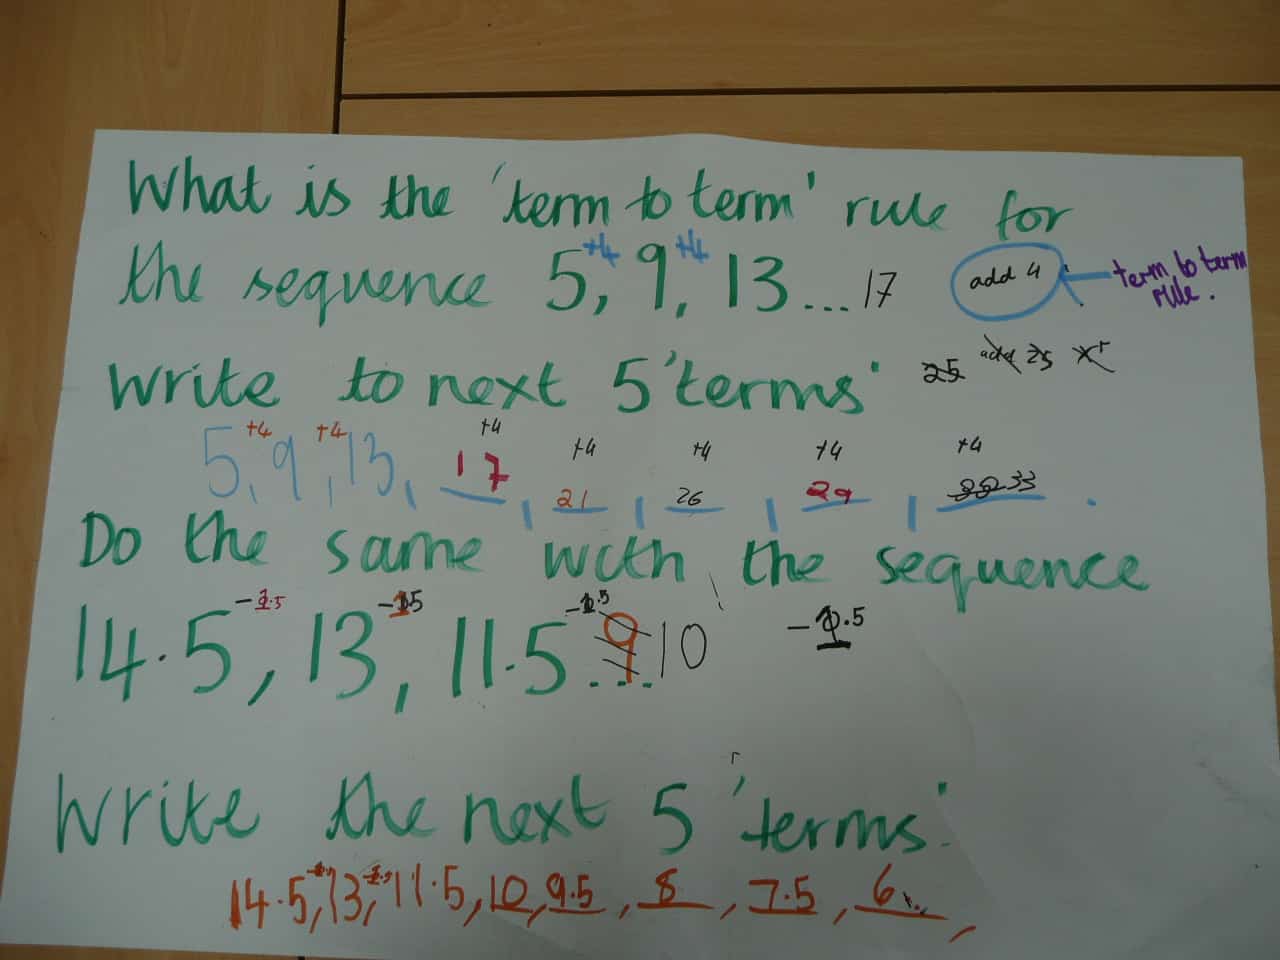 What is the 'term to term' rule for
the sequence 5, 9, 13 ... 17
+4 +4
add 4
term to term
rule.
Write to next 5 'terms'
25 add 25
+4 +4 +4 +4 +4 +4 +4
5, 9, 13, 17, 21, 26, 29, 33.
Do the same with the sequence
-1.5 -1.5 -1.5
14.5, 13, 11.5 ... 9 10
-1.5
Write the next 5 'terms'.
14.5, 13, 11.5, 10, 9.5, 8, 7.5, 6,